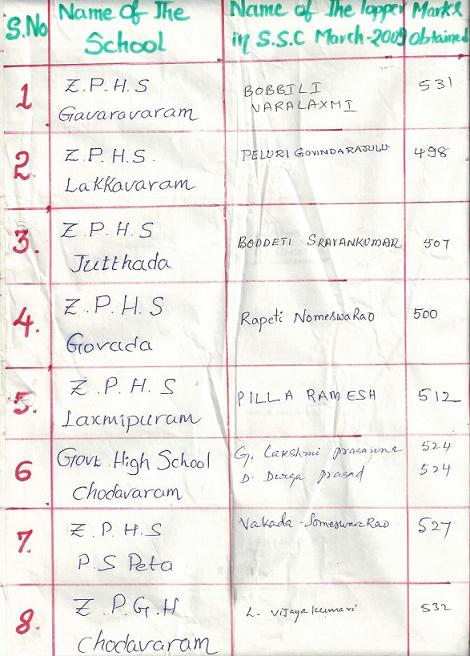 S.No Name of The School Name of The Topper in S.S.C March-2009 Marks obtained
1 Z.P.H.S Gavaravaram BOBBILI VARALAXMI 531
2 Z.P.H.S. Lakkavaram PELURI GOVINDARAJULU 498
3. Z.P.H.S Jutthada BODDETI SRAVANKUMAR 507
4. Z.P.H.S Govada Rapeti NomeswaRao 500
5. Z.P.H.S Laxmipuram PILLA RAMESH 512
6 Govt. High School Chodavaram G. Lakshmi prasanna 524 D. Durga prasad 524
7. Z.P.H.S P.S Peta Vakada Someswara Rao 527
8. Z.P.G.H Chodavaram L. Vijaya kumari 532